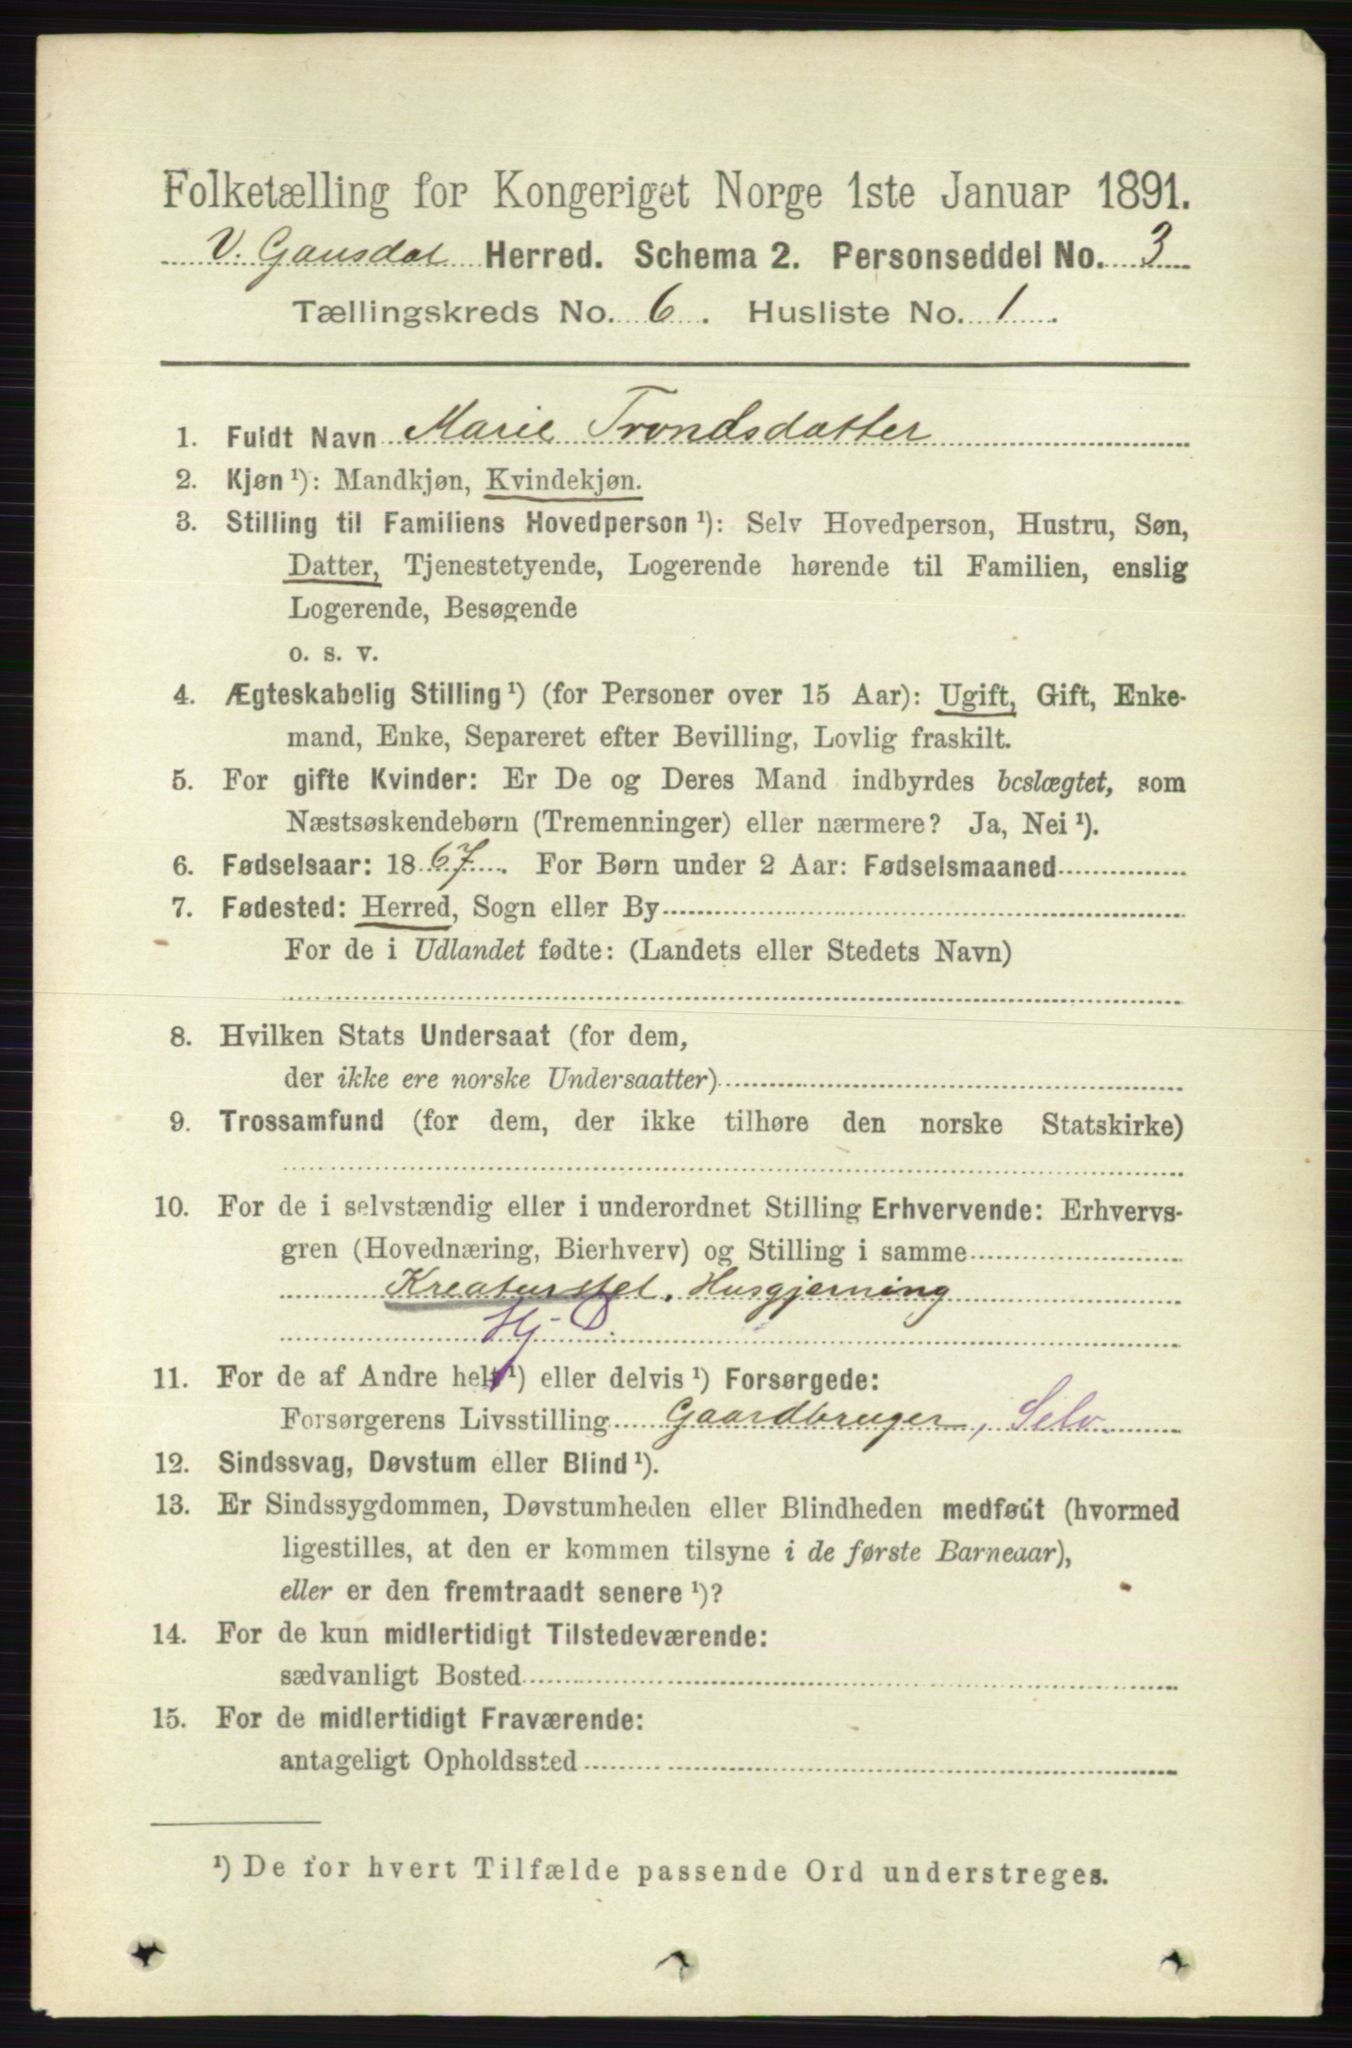 Folketælling for Kongeriget Norge 1ste Januar 1891.
V. Gausdal Herred. Schema 2. Personseddel No. 3
Tællingskreds No. 6. Husliste No. 1.
1. Fuldt Navn Marie Trondsdatter
2. Kjøn ¹): Mandkjøn, Kvindekjøn.
3. Stilling til Familiens Hovedperson ¹): Selv Hovedperson, Hustru, Søn,
Datter, Tjenestetyende, Logerende hørende til Familien, enslig
Logerende, Besøgende
o. s. v.
4. Ægteskabelig Stilling ¹) (for Personer over 15 Aar): Ugift, Gift, Enke-
mand, Enke, Separeret efter Bevilling, Lovlig fraskilt.
5. For gifte Kvinder: Er De og Deres Mand indbyrdes beslægtet, som
Næstsøskendebørn (Tremenninger) eller nærmere? Ja, Nei ¹).
6. Fødselsaar: 1867. For Børn under 2 Aar: Fødselsmaaned
7. Fødested: Herred, Sogn eller By
For de i Udlandet fødte: (Landets eller Stedets Navn)
8. Hvilken Stats Undersaat (for dem,
der ikke ere norske Undersaatter)
9. Trossamfund (for dem, der ikke tilhøre den norske Statskirke)
10. For de i selvstændig eller i underordnet Stilling Erhvervende: Erhvervs-
gren (Hovednæring, Bierhverv) og Stilling i samme
Kreaturstel, Husgjerning
Hj
11. For de af Andre helt ¹) eller delvis ¹) Forsørgede:
Forsørgerens Livsstilling Gaardbruger, Selv
12. Sindssvag, Døvstum eller Blind ¹).
13. Er Sindssygdommen, Døvstumheden eller Blindheden medfødt (hvormed
ligestilles, at den er kommen tilsyne i de første Barneaar),
eller er den fremtraadt senere ¹)?
14. For de kun midlertidigt Tilstedeværende:
sædvanligt Bosted
15. For de midlertidigt Fraværende:
antageligt Opholdssted
¹) De for hvert Tilfælde passende Ord understreges.